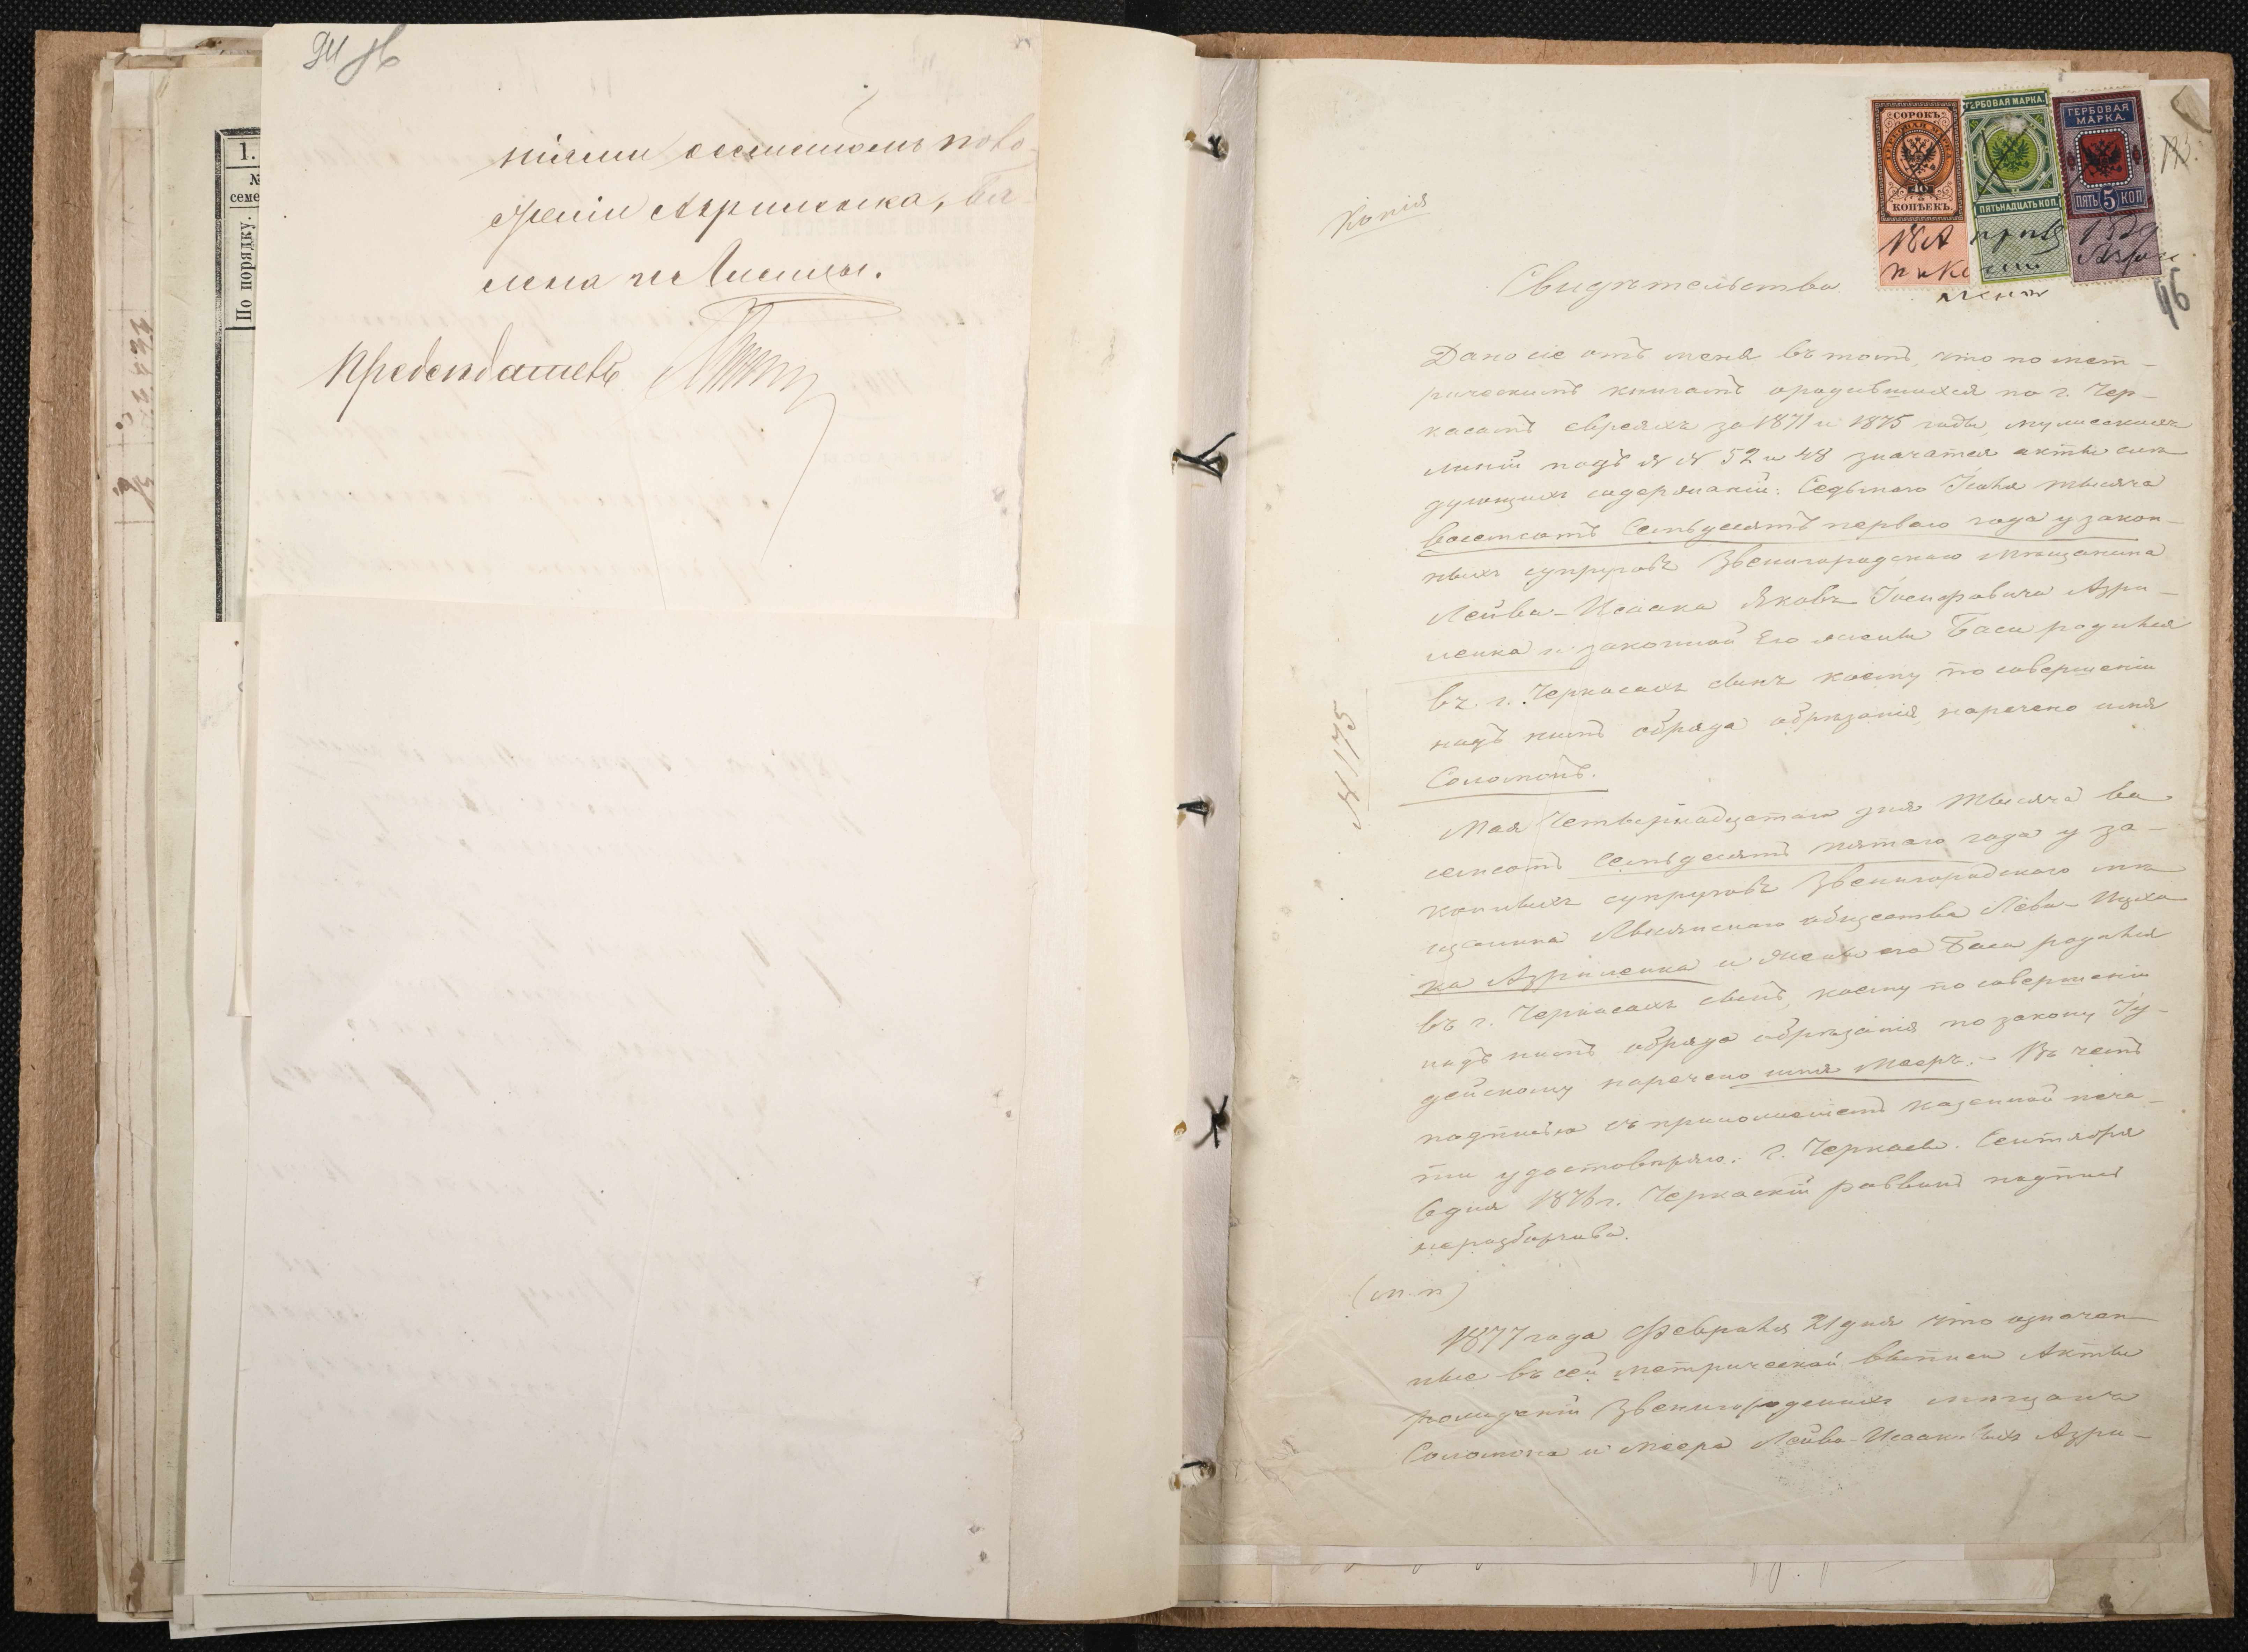 1.
№
семе
По порядку.
Предсѣдатель
Копія
СОРОКЪ
ГЕРБОВАЯ МАРКА
40
КОПѢЕКЪ.
ГЕРБОВАЯ МАРКА.
ПЯТЬНАДЦАТЬ КОП.
ГЕРБОВАЯ
МАРКА.
ПЯТЬ 5 КОП
46
Свидѣтельство
Дано сіе отъ меня въ томъ, что по мет-
рическимъ книгамъ о родившихся по г. Чер-
касамъ евреяхъ за 1871 и 1875 годы, мужескихъ
линій подъ №№ 52 и 48 значатся акты слѣ
дующихъ содержаній: Седьмого Іюля тысяча
восемсотъ Семьдесятъ перваго года у закон-
ныхъ супруговъ Звенигородскаго мѣщанина
Лейба-Исаака Яковъ Іосифовича Азри-
ленка и законной Его жены Баси родился
въ г. Черкасахъ сынъ коему по совершеніи
надъ нимъ обряда обрѣзанія наречено имя
Соломонъ.
№ 175
Мая Четвернадцатаго дня тысяча во
семсотъ Семьдесятъ пятаго года у за-
конныхъ супруговъ Звенигородскаго мѣ
щанина общества Лейба-Ицхо
ка Азриленка и жены его Баси родился
въ г. Черкасахъ сынъ, коему по совершеніи
надъ нимъ обряда обрѣзанія по закону Іу-
дейскому наречено имя Мееръ. Въ чемъ
подписью съ приложеніемъ казенной печа-
ти удостовѣряю. г. Черкасы. Сентября
6 дня 1876 г. Черкаскій раввинъ подпись
неразборчива.
(м. п)
1877 года Февраля 21 дня что означен-
ные въ сей метрической выписи Акты
рожденій Звенигородскихъ мѣщанъ
Соломона и Меера Лейба-Исааковыхъ Азри-